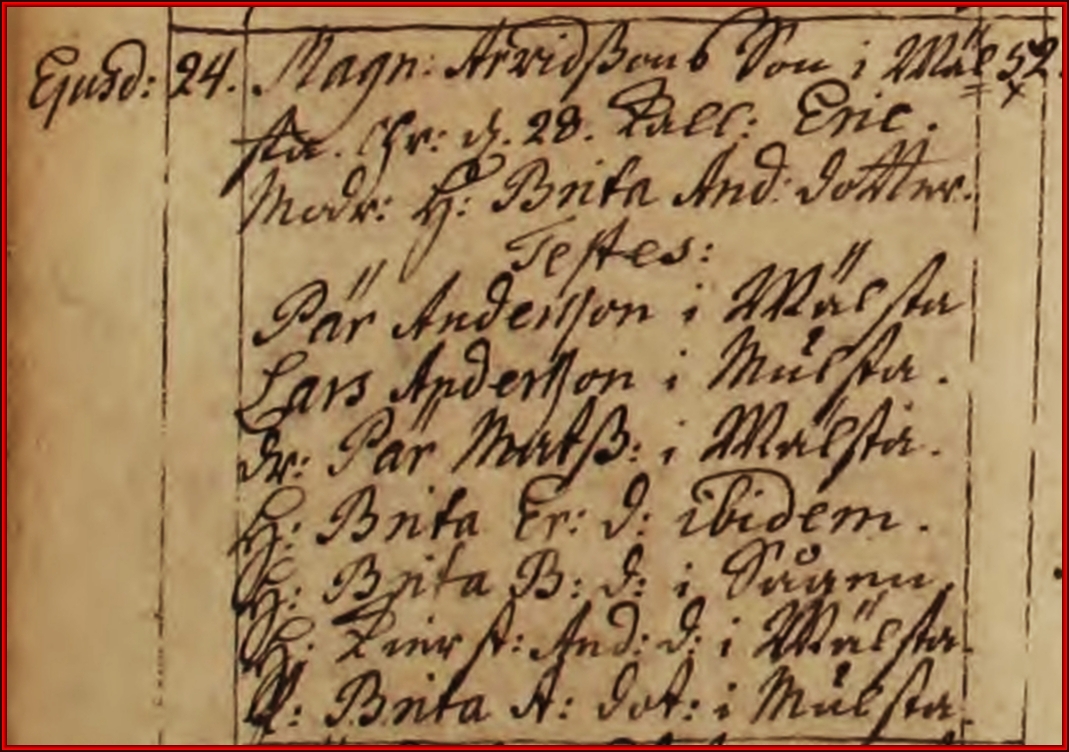 Ejusd: 24. Magn: Arvidßons Son i Wäl= 52.
sta. Chr: d. 28. Kall: Eric.
Modr: H: Brita And: dotter.
Testes:
Pär Andersson i Wälsta
Lars Andersson i Mulsta.
dr: Pär Matß: i Wälsta.
H: Brita Er: d: ibidem.
H: Brita B: d: i
H: Kierst: And: d: i Wälsta.
P: Brita A: dot: i Mulsta.